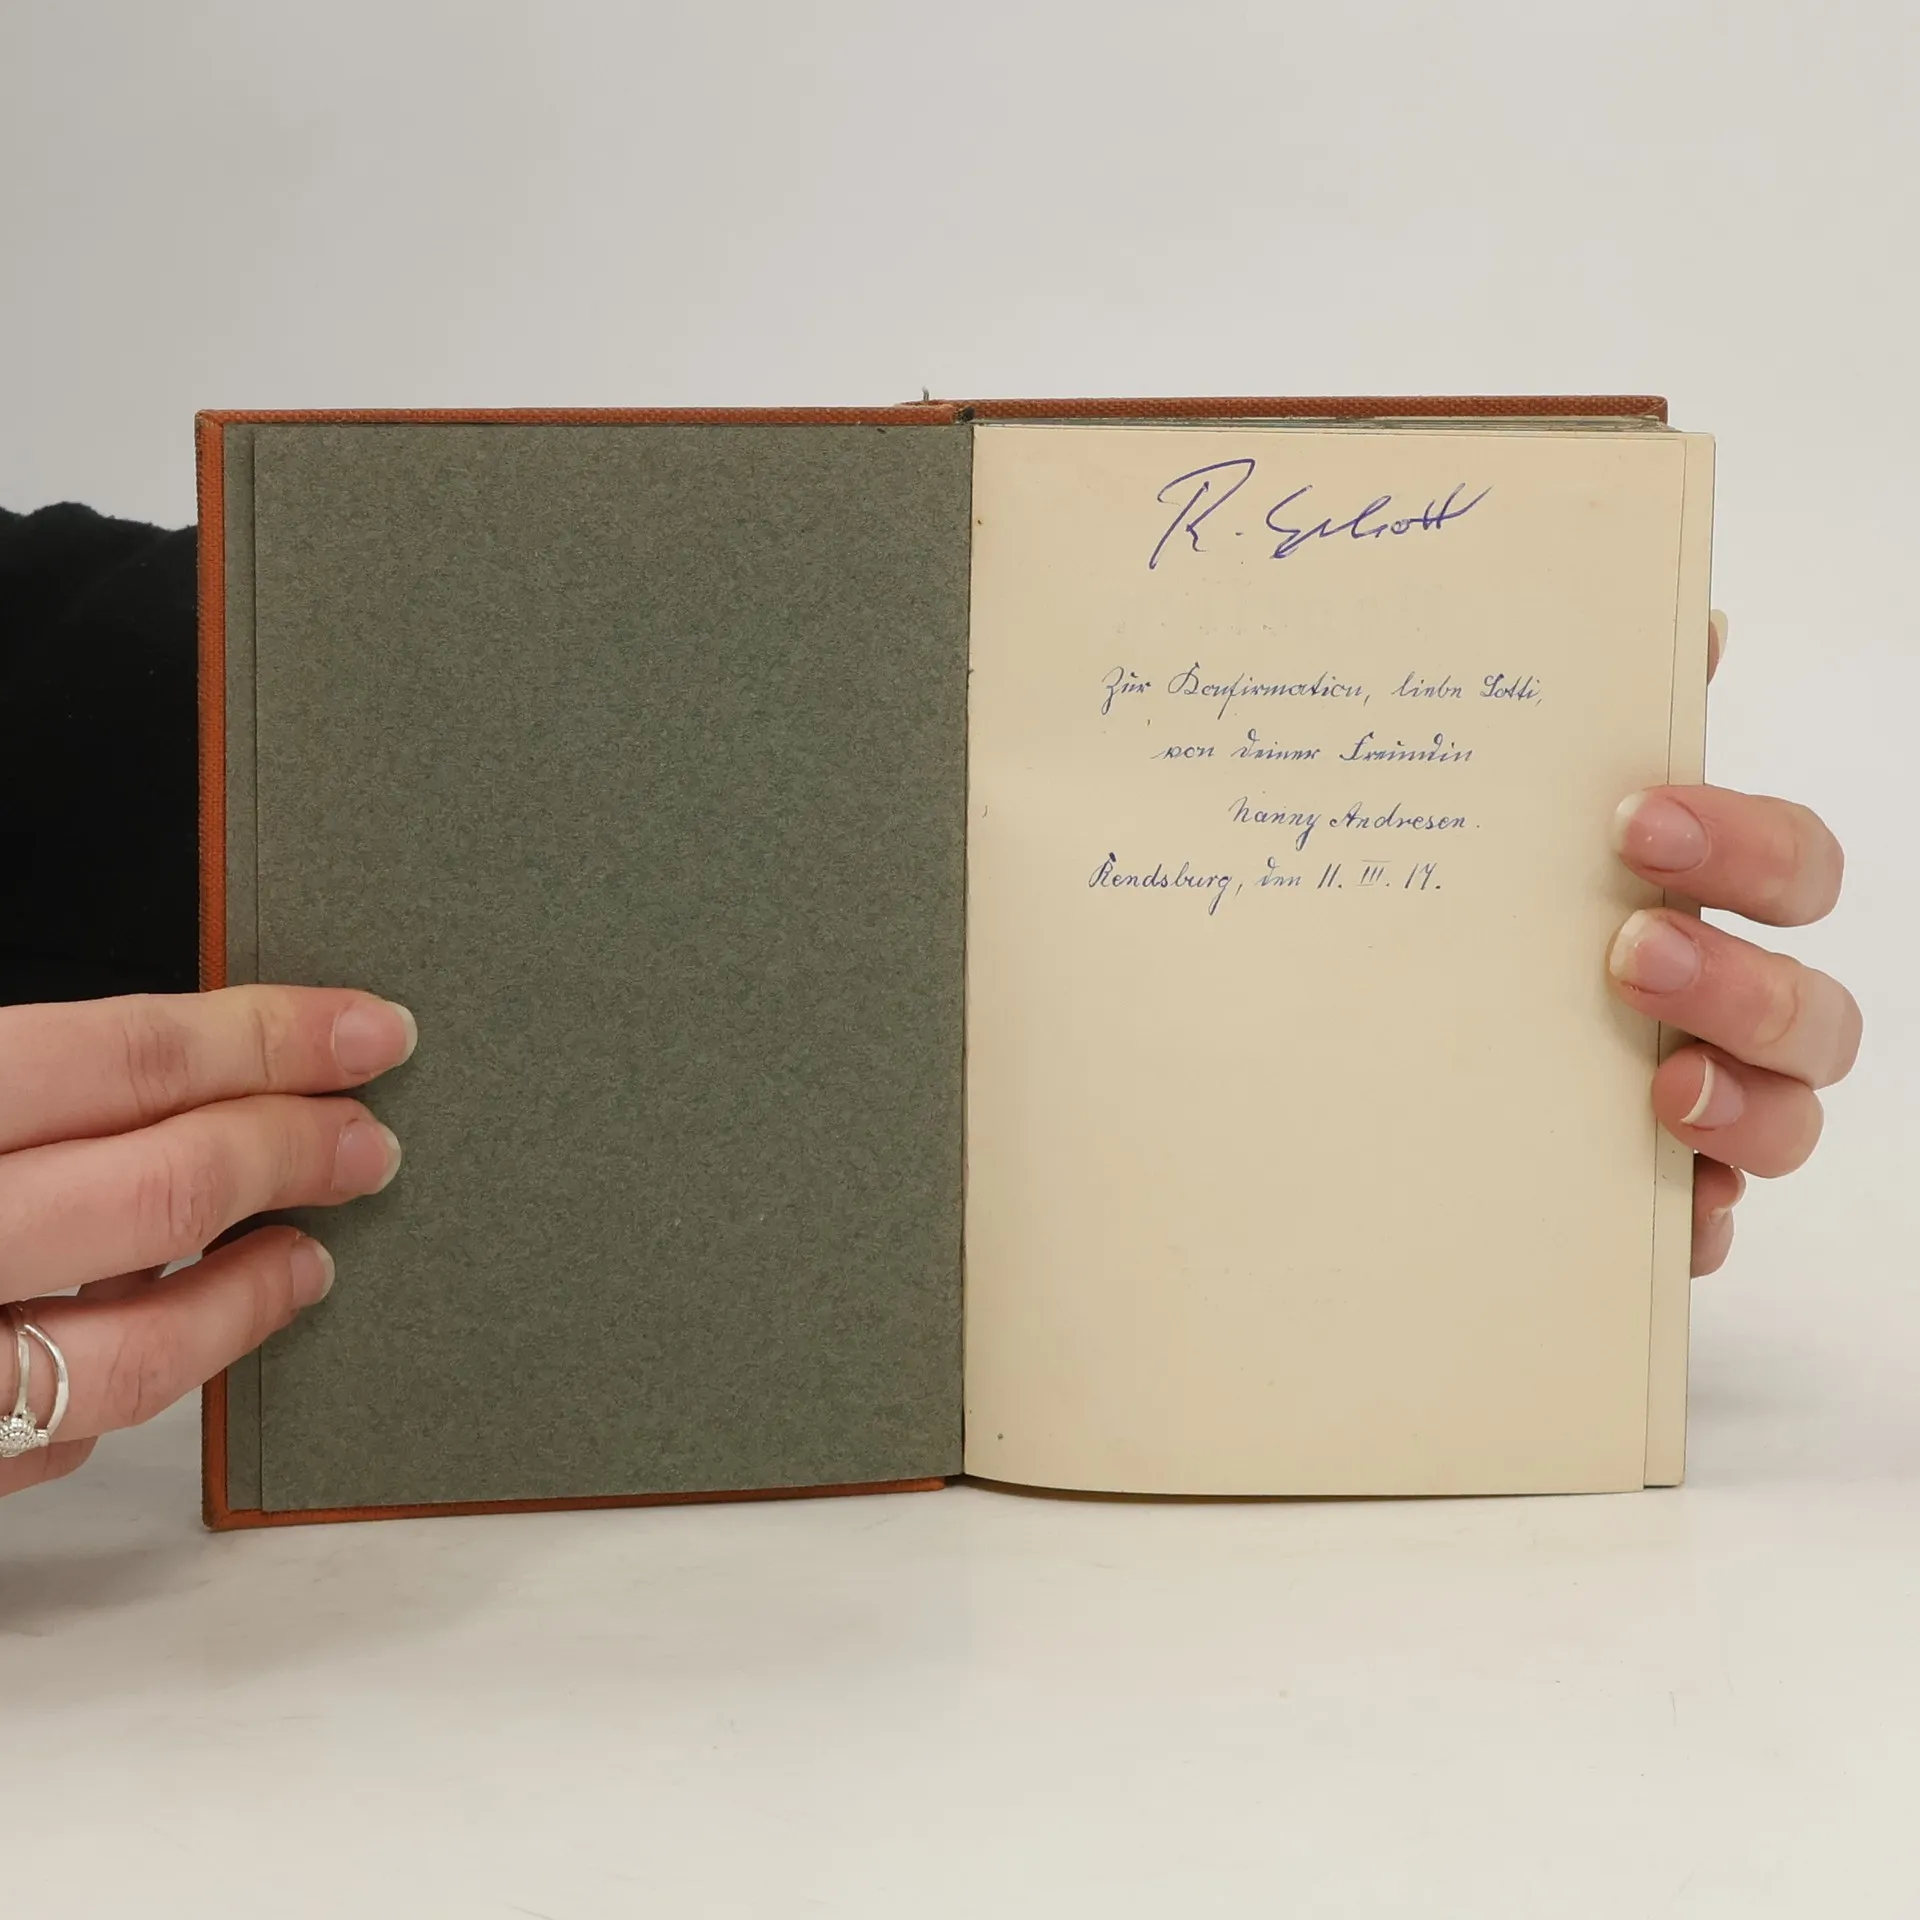 R. Schott
Zur Konfirmation, liebe Lotti,
von deiner Freundin
Nanny Andresen.
Rendsburg, den 11. III. 17.